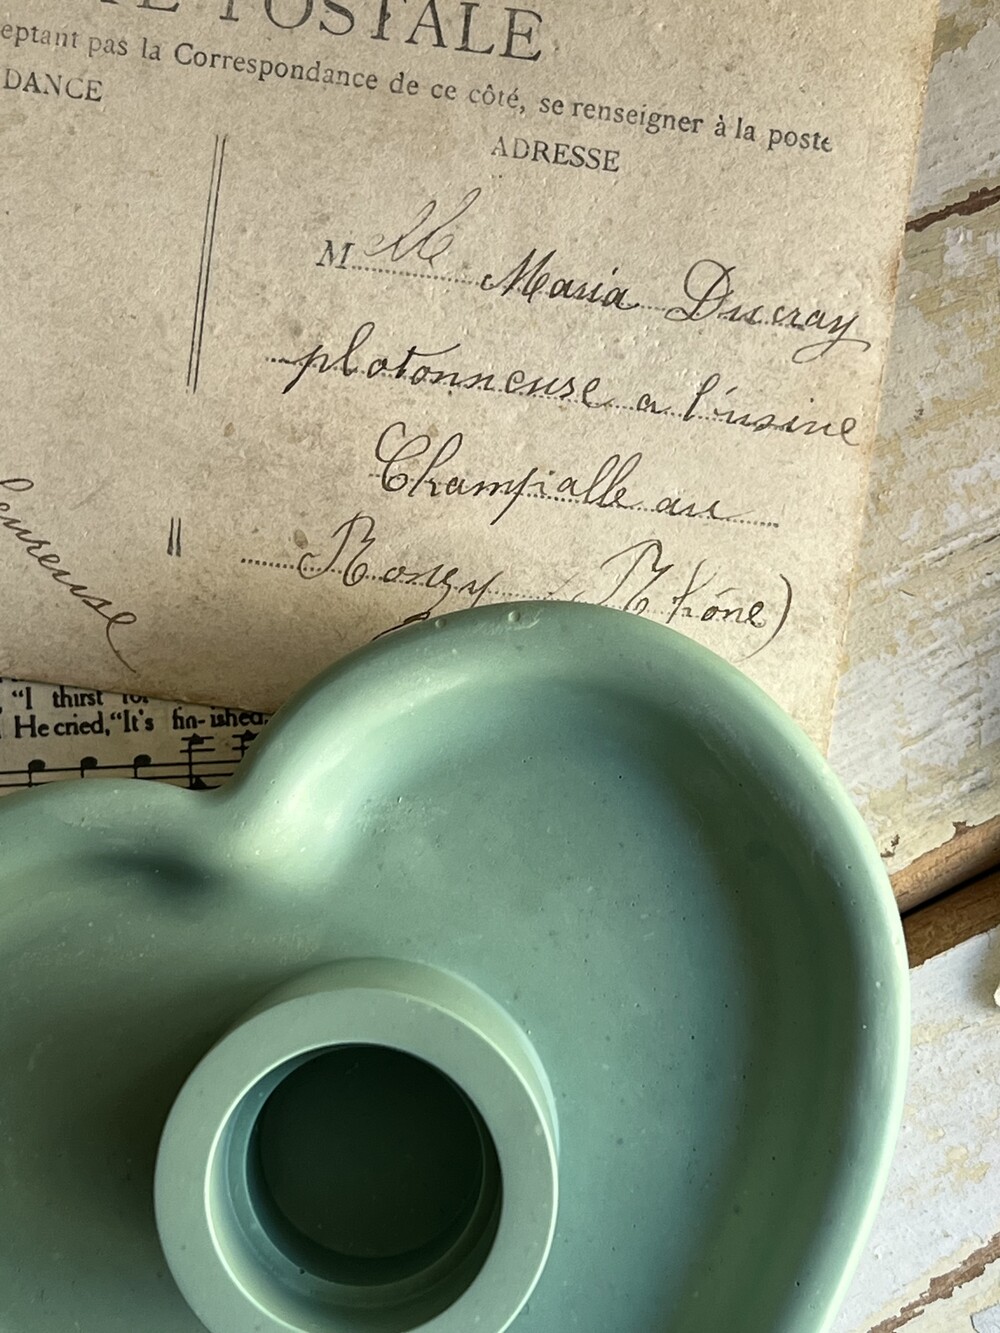 POSTALE
pas la Correspondance de ce côté, se renseigner à la poste
DANCE
ADRESSE
M lle Maria Ducray
plotonneuse a l'usine
Champialle au
Rongy (Rhône)
"I thirst
He cried, "It's fin-ished.